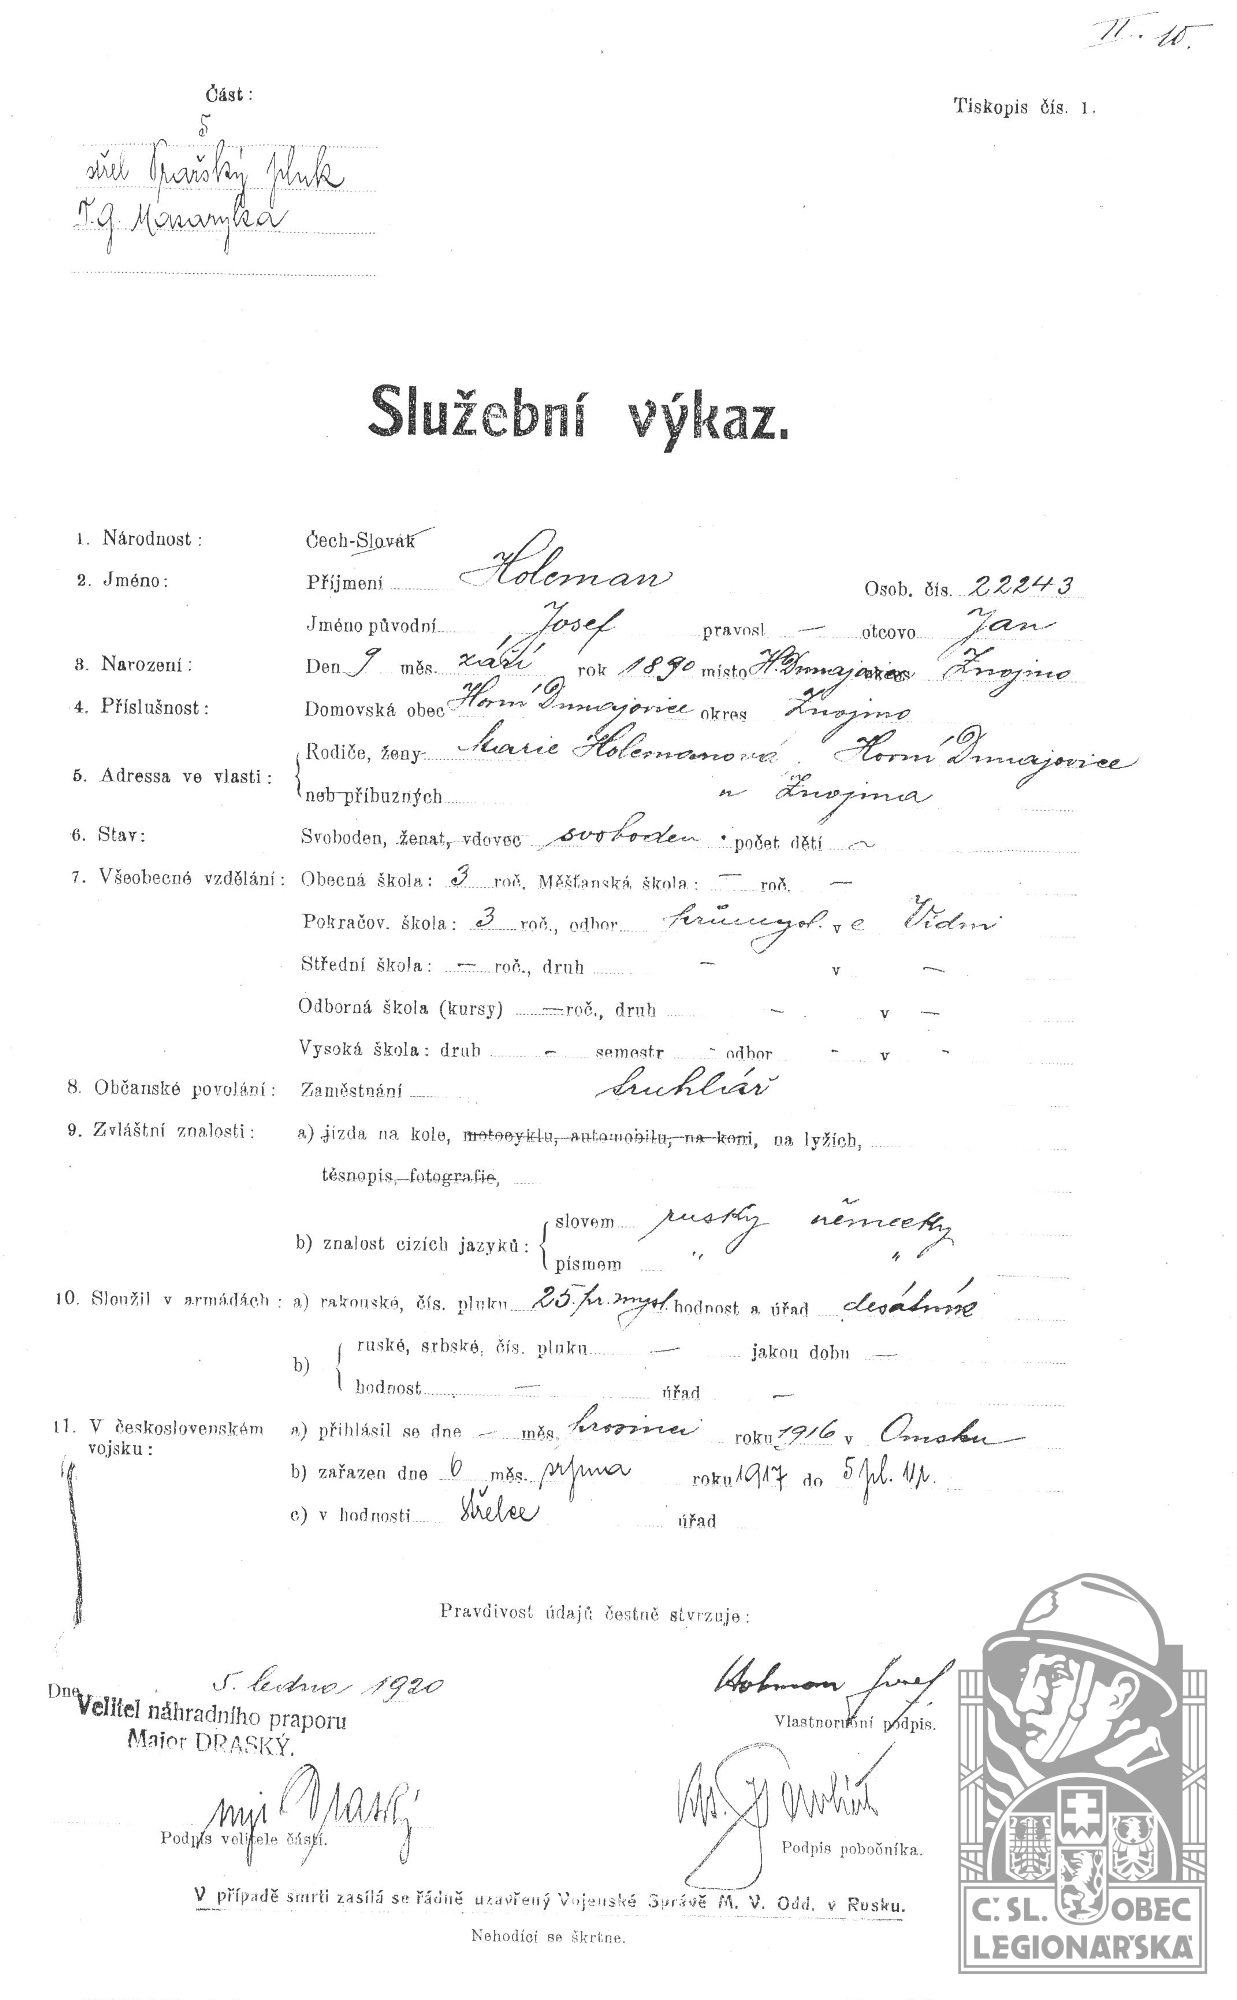 II. 10.
Část:
Tiskopis čís. 1.
5
střel Pražský pluk
T. G. Masaryka
Služební výkaz.
1. Národnost: Čech-Slovák
2. Jméno: Příjmení Holeman Osob. čís. 22243
Jméno původní Josef pravosl — otcovo Jan
3. Narození: Den 9 měs. září rok 1890 místo H. Dunajovice okres Znojmo
4. Příslušnost: Domovská obec Horní Dunajovice okres Znojmo
5. Adressa ve vlasti: Rodiče, ženy Marie Holemanová, Horní Dunajovice
neb příbuzných u Znojma
6. Stav: Svoboden, ženat, vdovec svoboden počet dětí ~
7. Všeobecné vzdělání: Obecná škola: 3 roč. Měšťanská škola: — roč. —
Pokračov. škola: 3 roč., odbor průmysl. v e Vídni
Střední škola: — roč., druh — v —
Odborná škola (kursy) — roč., druh — v —
Vysoká škola: druh — semestr - odbor - v -
8. Občanské povolání: Zaměstnání truhlář
9. Zvláštní znalosti: a) jízda na kole, motocyklu, automobilu, na koni, na lyžích,
těsnopis, fotografie,
b) znalost cizích jazyků: slovem rusky německy
písmem " "
10. Sloužil v armádách: a) rakouské, čís. pluku 25. pr. mysl. hodnost a úřad desátník
b) ruské, srbské, čís. pluku — jakou dobu —
hodnost — úřad —
11. V československém vojsku: a) přihlásil se dne — měs. prosinci roku 1916 v Omsku
b) zařazen dne 6 měs. srpna roku 1917 do 5 pl. úp.
c) v hodnosti střelce úřad
Pravdivost údajů čestně stvrzuje:
Dne 5. ledna 1920
Holeman Josef
Velitel náhradního praporu
Vlastnoruční podpis.
Major DRASKÝ.
mjr Draský
Podpis velitele části.
Podpis pobočníka.
V případě smrti zasílá se řádně uzavřený Vojenské Správě M. V. Odd. v Rusku.
Nehodící se škrtne.
Č. SL. OBEC
LEGIONÁŘSKÁ